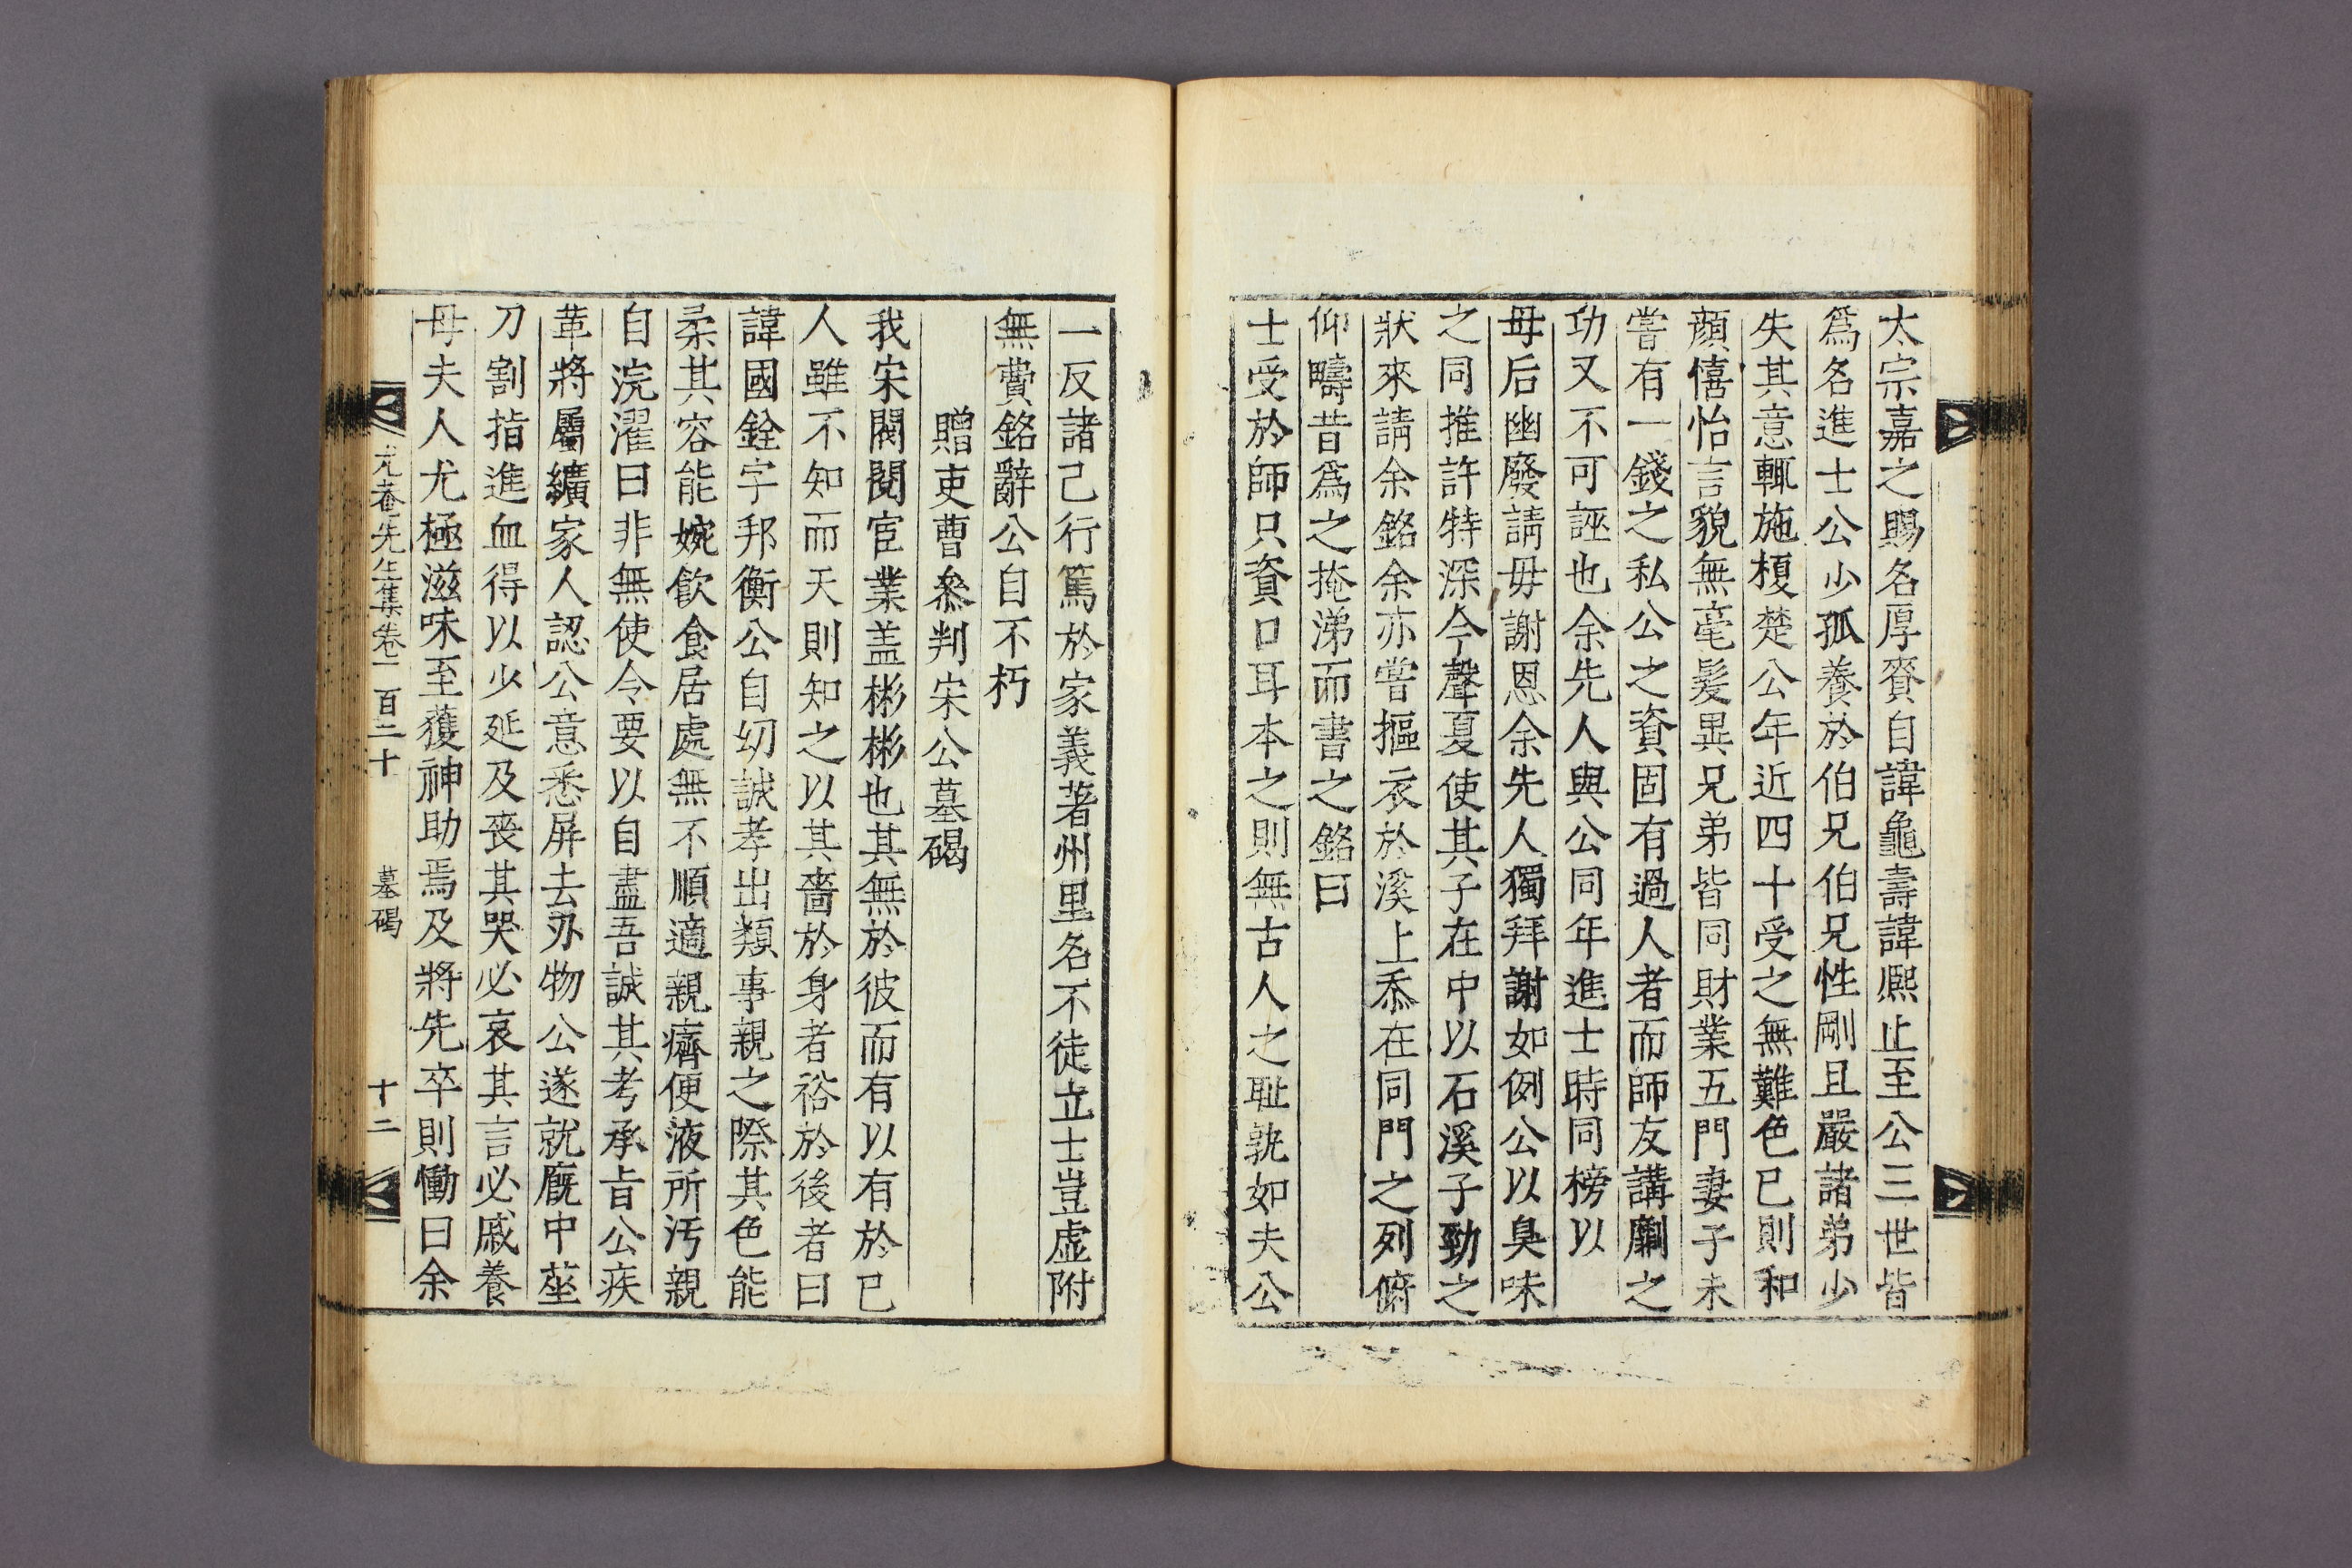 太宗嘉之賜名厚賚自諱龜壽諱熈止至公三世皆
爲名進士公少孤養於伯兄伯兄性剛且嚴諸弟少
失其意輒施榎楚公年近四十受之無難色已則和
顔僖怡言貌無毫髮異兄弟皆同財業五門妻子未
嘗有一錢之私公之資固有過人者而師友講劘之
功又不可誣也余先人與公同年進士時同榜以
母后幽廢請毋謝恩余先人獨拜謝如例公以臭味
之同推許特深今聲夏使其子在中以石溪子勁之
狀來請余銘余亦嘗摳衣於溪上忝在同門之列俯
仰疇昔爲之掩涕而書之銘曰
士受於師只資口耳本之則無古人之耻孰如夫公
一反諸己行篤於家義著州里名不徒立士豈虛附
無費銘辭公自不朽
贈吏曹叅判宋公墓碣
我宋閥閱宦業盖彬彬也其無於彼而有以有於已
人雖不知而天則知之以其嗇於身者裕於後者曰
諱國銓字邦衡公自幼誠孝出類事親之際其色能
柔其容能婉飮食居處無不順適親癠便液所汚親
自浣濯曰非無使令要以自盡吾誠其考承旨公疾
革將屬纊家人認公意悉屏去刅物公遂就廐中莝
刀割指進血得以少延及喪其哭必哀其言必慼養
母夫人尤極滋味至獲神助焉及將先卒則慟曰余
尤菴先生集卷一百二十 墓碣 十二